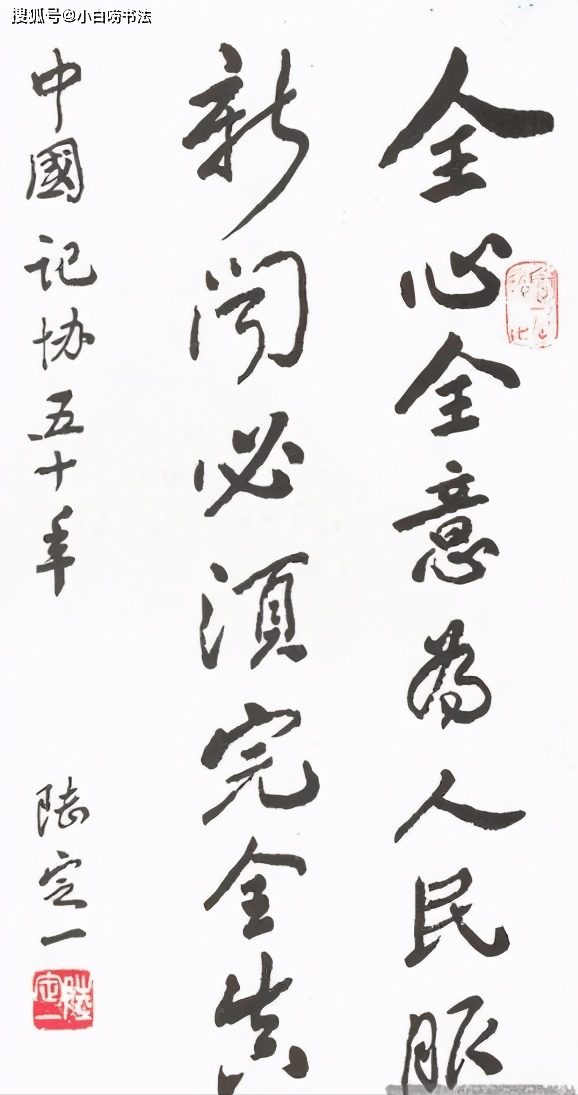 搜狐号@小白唠书法
全心全意為人民服
新闻必須完全真
中國记协五十年
陆定一
陸定一